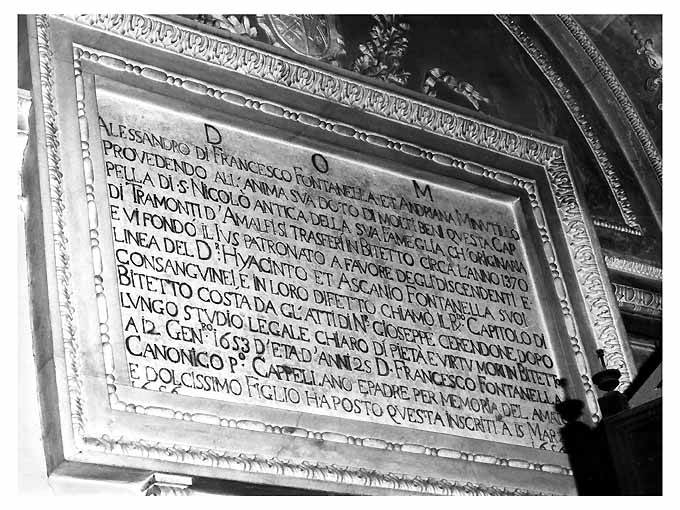 D O M
ALESSANDRO DI FRANCESCO FONTANELLA ET ANDRIANA MINVTILLO
PROVEDENDO ALL'ANIMA SVA DOTO DI MOLTI BENI QVESTA CAP
PELLA DI S NICOLÒ ANTICA DELLA SVA FAMEGLIA CH'ORIGINARIA
DI TRAMONTI D'AMALFI SI TRASFERÌ IN BITETTO CIRCA L'ANNO 1370
E VI FONDÒ IL IVS PATRONATO A FAVORE DEGLI DISCENDENTI E
LINEA DEL DR HYACINTO ET ASCANIO FONTANELLA SVOI
CONSANGVINEI E IN LORO DIFETTO CHIAMÒ IL CAPITOLO DI
BITETTO COSTA DA GL'ATTI DI NR GIOSEPPE CERENDONE DOPO
LVNGO STVDIO LEGALE CHIARO DI PIETÀ E VIRTV MORÌ IN BITETTO
A 12 GENRO 1653 D'ETÀ D'ANNI 25 D. FRANCESCO FONTANELLA
CANONICO PO CAPPELLANO E PADRE PER MEMORIA DEL AMATO
E DOLCISSIMO FIGLIO HA POSTO QVESTA INSCRITI A 15 MAR